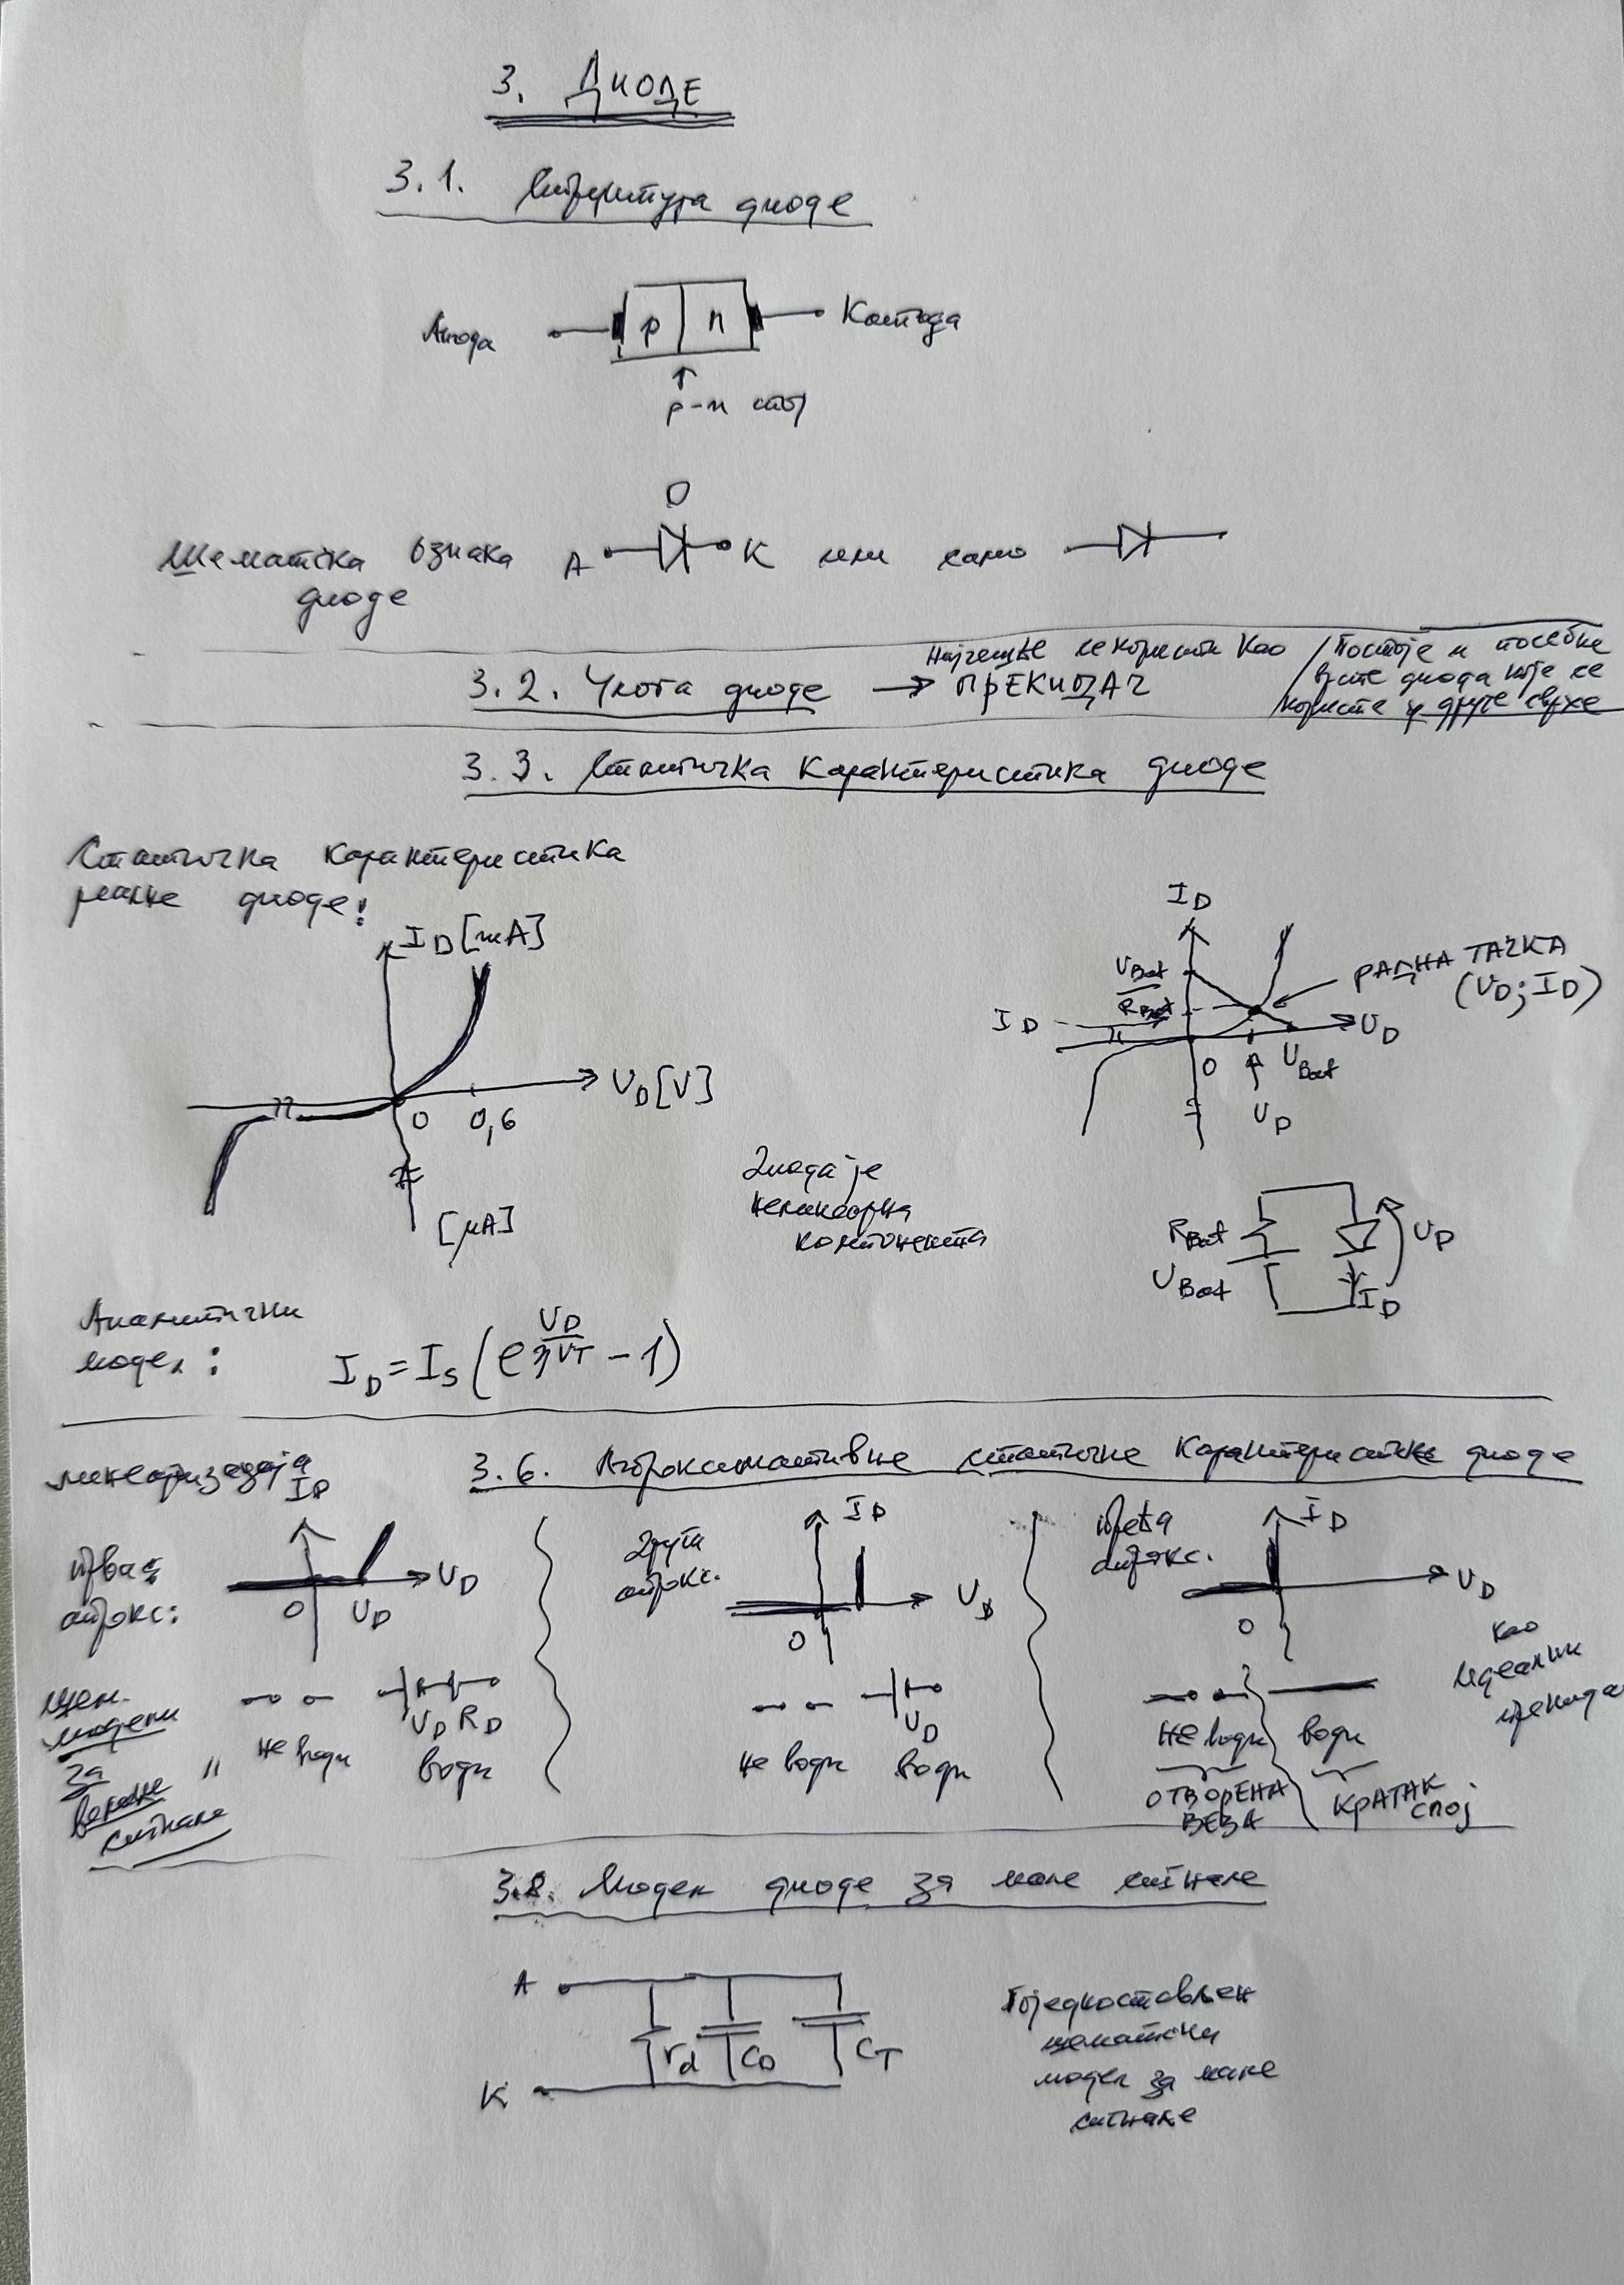 3. ДИОДЕ
3.1. Структура диоде
Анода
p n
Катода
p-n спој
D
Шематска ознака A K или само
диоде
3.2. Улога диоде → Најчешће се користи као
ПРЕКИДАЧ
Постоје и посебне
врсте диода које се
користе у друге сврхе
3.3. Статичка карактеристика диоде
Статичка карактеристика
реалне диоде:
I_D [mA]
U_D [V]
0 0,6
[μA]
I_D
U_Bat
R_Bat
РАДНА ТАЧКА
(U_D; I_D)
I_D
U_D
0 U_Bat
U_D
Диода је
нелинеарна
компонента
R_Bat
U_Bat
U_D
I_D
Аналитички
модел:
I_D = I_S (e^{U_D/ηU_T} - 1)
линеаризација
3.6. Апроксимативне статичке карактеристике диоде
прва
апрокс:
I_D
U_D
0 U_D
Друга
апрокс.
I_D
U_D
0
трећа
апрокс.
I_D
U_D
0
као
идеални
прекидач
шем.
модели
за
велике
сигнале
U_D R_D
не води води
U_D
не води води
не води води
ОТВОРЕНА
ВЕЗА
КРАТАК
СПОЈ
3.8. Модел диоде за мале сигнале
A
r_d C_D C_T
K
Поједностављен
шематски
модел за мале
сигнале